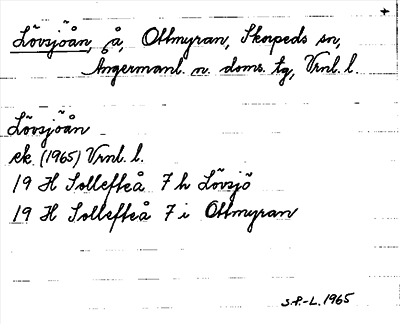 Lövsjöån, å, Ottmyran, Skorpeds sn,
Ångermanl. n. doms. tg, Vrnl. l.
Lövsjöån
ek. (1965) Vrnl. l.
19 H Sollefteå 7 h Lövsjö
19 H Sollefteå 7 i Ottmyran
S.P.-L. 1965